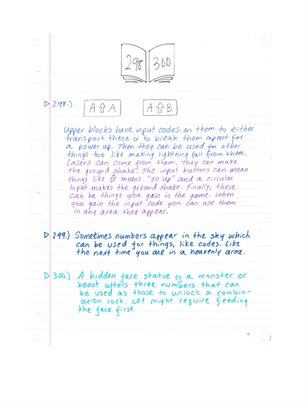 298 300
298.) A⇧A A⇧B
Upper blocks have input codes on them to either
transport these or to break them apart for
a power up. Then they can be used for other
things too like making lightning fall from them.
Lasers can come from them. They can make
the ground shake! The input buttons can mean
things like means "go up" and a circular
input makes the ground shake. Finally, these
can be things you gain in the game. When
you gain the input code you can use them
in any area they appear.
299.) Sometimes numbers appear in the sky which
can be used for things, like codes. Like
the next time you are in a heavenly area.
300.) A hidden face statue of a monster or
beast utters three numbers that can
be used as those to unlock a combin-
ation lock. It might require feeding
the face first.